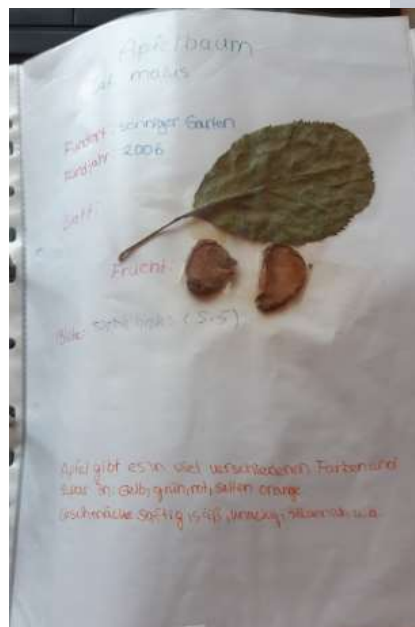 Apfelbaum
malus
Fundort: sonniger Garten
Fundjahr: 2006
Blatt:
Frucht:
Blüte: siehe links (S.5)
Apfel gibt es in viel verschiedenen Farben und
zwar in: Gelb, grün, rot, selten orange
Geschmäcke: saftig, süß, knackig, säuerlich u.a.